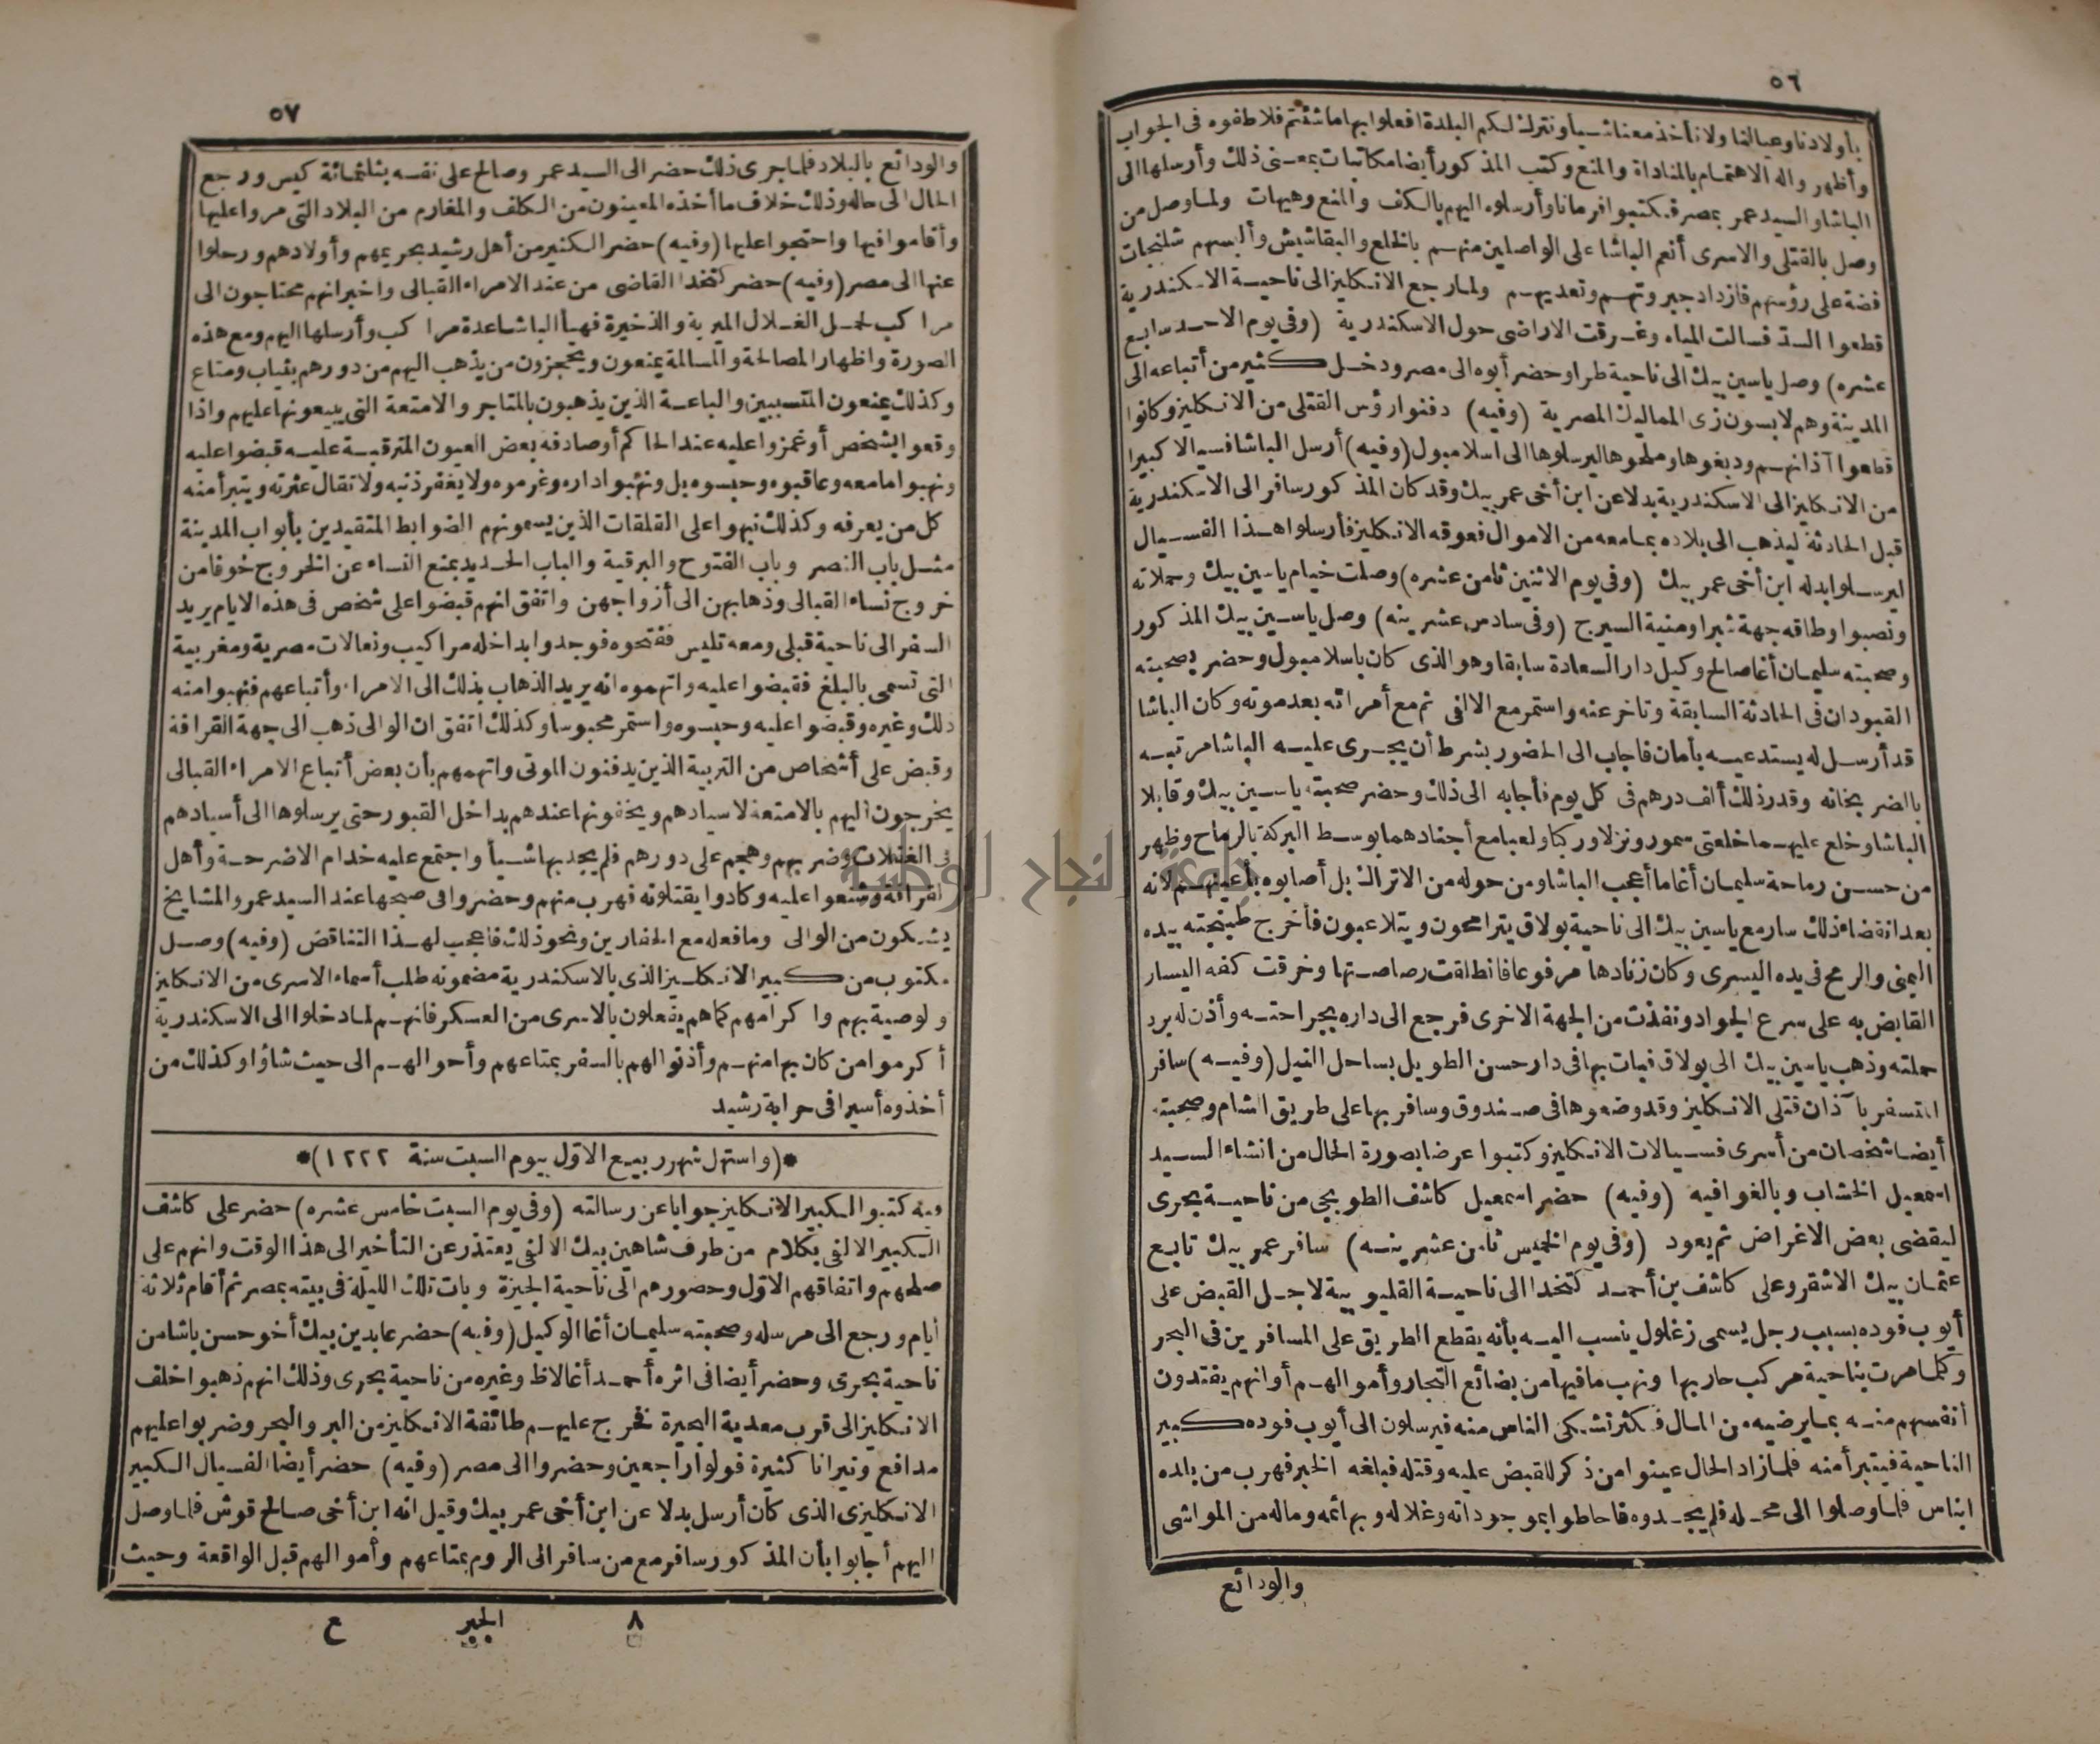 ٥٦
بأولادنا وعيالنا ولا نأخذ معنا شيأ ونترك لكم البلدة افعلوا بها ما شئتم فلاطفوه فى الجواب
وأظهر واله الاهتمام بالمناداة والمنع وكتب المذكور أيضا مكاتبات بمعنى ذلك وأرسلها الى
الباشا والسيد عمر بمصر فكتبوا فرمانا وأرسلوه اليهم بالكف والمنع وهيهات ولما وصل من
وصل بالقتلى والاسرى أنعم الباشا على الواصلين منهم بالخلع والبقاشيش وألبسهم شلنجات
فضة على رؤسهم فازداد جبروتهم وتعديهم ولما رجع الانكليز الى ناحية الاسكندرية
قطعوا السد فسالت المياه وغرقت الاراضى حول الاسكندرية (وفى يوم الاحد سابع
عشره) وصل ياسين بيك الى ناحية طرا وحضر أبوه الى مصر ودخل كثير من أتباعه الى
المدينة وهم لابسون زى المماليك المصرية (وفيه) دفنوا رؤس القتلى من الانكليز وكانوا
قطعوا آذانهم ودبغوها وملحوها ليرسلوها الى اسلامبول (وفيه) أرسل الباشا فسيالا كبيرا
من الانكليز الى الاسكندرية بدلا عن ابن أخى عمر بيك وقد كان المذكور سافر الى الاسكندرية
قبل الحادثة ليذهب الى بلاده بما معه من الاموال فعوقه الانكليز فأرسلوا هذا الفسيال
ليرسلوا بدله ابن أخى عمر بيك (وفى يوم الاثنين ثامن عشره) وصلت خيام ياسين بيك وحملاته
ونصبوا وطاقه جهة شبرا ومنية السيرج (وفى سادس عشرينه) وصل ياسين بيك المذكور
وصحبته سليمان أغا صالح وكيل دار السعادة سابقا وهو الذى كان باسلامبول وحضر بصحبته
القبودان فى الحادثة السابقة وتاخر عنه واستمر مع الالفى ثم مع أمرائه بعد موته وكان الباشا
قد أرسل له يستدعيه بأمان فاجاب الى الحضور بشرط أن يجرى عليه الباشا مرتبه
بالضربخانه وقدر ذلك ألف درهم فى كل يوم فأجابه الى ذلك وحضر صحبته ياسين بيك وقابلا
الباشا وخلع عليهما خلعتى سمور ونزلا وركبا ولعبا مع أجنادهما بوسط البركة بالرماح وظهر
من حسن رماحة سليمان أغا ما أعجب الباشا ومن حوله من الاتراك بل أصابوه بأعينهم لانه
بعد انقضاء ذلك سار مع ياسين بيك الى ناحية بولاق يترامحون ويتلاعبون فأخرج طبنجته بيده
اليمنى والرمح فى يده اليسرى وكان زنادها مرفوعا فانطلقت رصاصتها وخرقت كفه اليسار
القابض به على سرع الجواد ونفذت من الجهة الاخرى فرجع الى داره بجراحته وأذن له برد
حملته وذهب ياسين بيك الى بولاق فبات بها فى دار حسن الطويل بساحل النيل (وفيه) سافر
المتسفر بآذان قتلى الانكليز وقد وضعوها فى صندوق وسافر بها على طريق الشام وصحبته
أيضا شخصان من أسرى فسيالات الانكليز وكتبوا عرضا بصورة الحال من انشاء السيد
اسمعيل الخشاب وبالغوا فيه (وفيه) حضر اسمعيل كاشف الطوبجى من ناحية بحرى
ليقضى بعض الاغراض ثم يعود (وفى يوم الخميس ثامن عشرينه) سافر عمر بيك تابع
عثمان بيك الاشقر وعلى كاشف بن أحمد كتخدا الى ناحية القليوبية لاجل القبض على
أيوب فوده بسبب رجل يسمى زغلول ينسب اليه بأنه يقطع الطريق على المسافرين فى البحر
وكلما مرت بناحيته مركب حاربها ونهب ما فيها من بضائع التجار وأموالهم أو انهم يفتدون
أنفسهم منه بما يرضيه من المال فكثر تشكى الناس منه فيرسلون الى أيوب فوده كبير
الناحية فيتبرأ منه فلما زاد الحال عينوا من ذكر للقبض عليه وقتله فبلغه الخبر فهرب من بلده
ابناس فلما وصلوا الى محله فلم يجدوه فاحاطوا بموجوداته وغلاله وبهائمه وماله من المواشى
والودائع
٥٧
والودائع بالبلاد فلما جرى ذلك حضر الى السيد عمر وصالح على نفسه بثلثمائة كيس ورجع
الحال الى حاله وذلك خلاف ما أخذه المعينون من الكلف والمغارم من البلاد التى مروا عليها
وأقاموا فيها واحتجوا عليها (وفيه) حضر الكثير من أهل رشيد بحريمهم وأولادهم ورحلوا
عنها الى مصر (وفيه) حضر كتخدا القاضى من عند الامراء القبالى واخبر انهم محتاجون الى
مراكب لحمل الغلال الميرية والذخيرة فهيأ الباشا عدة مراكب وأرسلها اليهم ومع هذه
الصورة واظهار المصالحة والمسالمة يمنعون ويحجزون من يذهب اليهم من دورهم بثياب ومتاع
وكذلك يمنعون المتسببين والباعة الذين يذهبون بالمتاجر والامتعة التى يبيعونها عليهم واذا
وقعوا بشخص أو غمزوا عليه عند الحاكم أو صادفه بعض العيون المترقبة عليه قبضوا عليه
ونهبوا ما معه وعاقبوه وحبسوه بل ونهبوا داره وغرموه ولا يغفر ذنبه ولا تقال عثرته ويتبرأ منه
كل من يعرفه وكذلك نبهوا على القلقات الذين يسمونهم الضوابط المتقيدين بأبواب المدينة
مثل باب النصر وباب الفتوح والبرقية والباب الحديد بمنع النساء عن الخروج خوفا من
خروج نساء القبالى وذهابهن الى أزواجهن واتفق انهم قبضوا على شخص فى هذه الايام يريد
السفر الى ناحية قبلى ومعه تليس ففتحوه فوجدوا بداخله مراكيب ونعالات مصرية ومغربية
التى تسمى بالبلغ فقبضوا عليه واتهموه انه يريد الذهاب بذلك الى الامراء وأتباعهم فنهبوا منه
ذلك وغيره وقبضوا عليه وحبسوه واستمر محبوسا وكذلك اتفق ان الوالى ذهب الى جهة القرافة
وقبض على أشخاص من التربية الذين يدفنون الموتى واتهمهم بأن بعض أتباع الامراء القبالى
يخرجون اليهم بالامتعة لاسيادهم ويخفونها عندهم بداخل القبور حتى يرسلوها الى أسيادهم
فى الغفلات وضربهم وهجم على دورهم فلم يجد بها شيأ واجتمع عليه خدام الاضرحة وأهل
القرافة وشنعوا عليه وكادوا يقتلونه فهرب منهم وحضروا فى صبحها عند السيد عمر والمشايخ
يشكون من الوالى وما فعله مع الحفارين ونحو ذلك فاعجب لهذا التناقض (وفيه) وصل
مكتوب من كبير الانكليز الذى بالاسكندرية مضمونه طلب أسماء الاسرى من الانكليز
والوصية بهم واكرامهم كما هم يفعلون بالاسرى من العسكر فانهم لما دخلوا الى الاسكندرية
أكرموا من كان بها منهم وأذنوا لهم بالسفر بمتاعهم وأحوالهم الى حيث شاؤا وكذلك من
أخذوه أسيرا فى حرابة رشيد
*(واستهل شهر ربيع الاول بيوم السبت سنة ١٢٢٢)*
فيه كتبوا لكبير الانكليز جوابا عن رسالته (وفى يوم السبت خامس عشره) حضر على كاشف
الكبير الالفى بكلام من طرف شاهين بيك الالفى يعتذر عن التأخير الى هذا الوقت وانهم على
صلحهم واتفاقهم الاول وحضورهم الى ناحية الجيزة وبات تلك الليلة فى بيته بمصر ثم أقام ثلاثة
أيام ورجع الى مرسله وصحبته سليمان أغا الوكيل (وفيه) حضر عابدين بيك أخو حسن باشا من
ناحية بحرى وحضر أيضا فى اثره أحمد أغا لاظ وغيره من ناحية بحرى وذلك انهم ذهبوا خلف
الانكليز الى قرب معدية البحيرة فخرج عليهم طائفة الانكليز من البر والبحر وضربوا عليهم
مدافع ونيرانا كثيرة فولوا راجعين وحضروا الى مصر (وفيه) حضر أيضا الفسيال الكبير
الانكليزى الذى كان أرسل بدلا عن ابن أخى عمر بيك وقيل انه ابن أخى صالح قوش فلما وصل
اليهم أجابوا بأن المذكور سافر مع من سافر الى الروم بمتاعهم وأموالهم قبل الواقعة وحيث
٨ الجبر ع
جامعة النجاح الوطنية